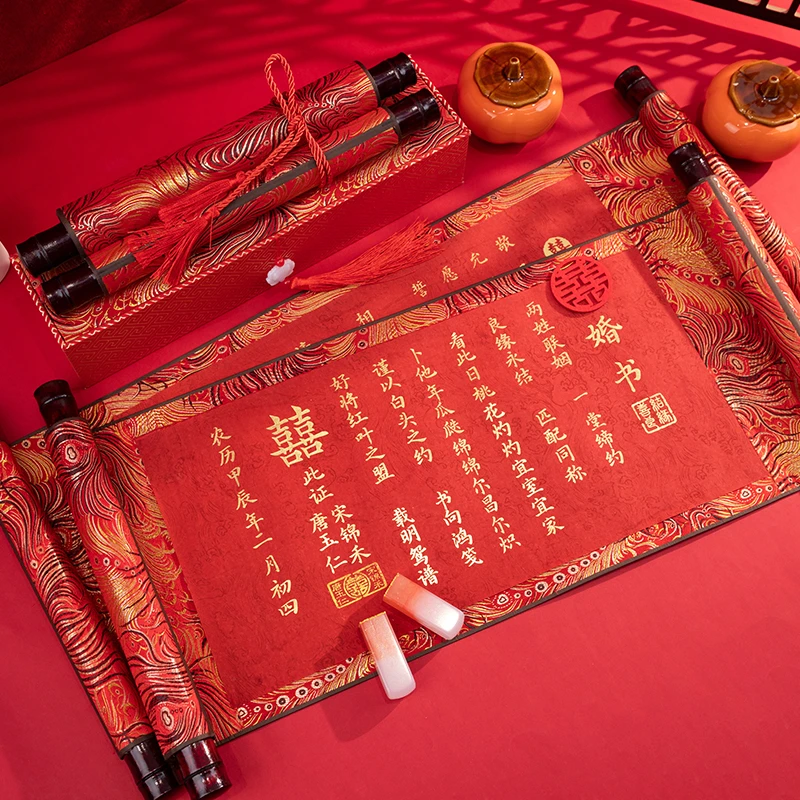 婚书
两姓联姻 一堂缔约
良缘永结 匹配同称
看此日桃花灼灼宜室宜家
卜他年瓜瓞绵绵尔昌尔炽
谨以白头之约 书向鸿笺
好将红叶之盟 载明鸳谱
囍 此证 宋锦禾
唐玉仁
农历甲辰年二月初四
囍